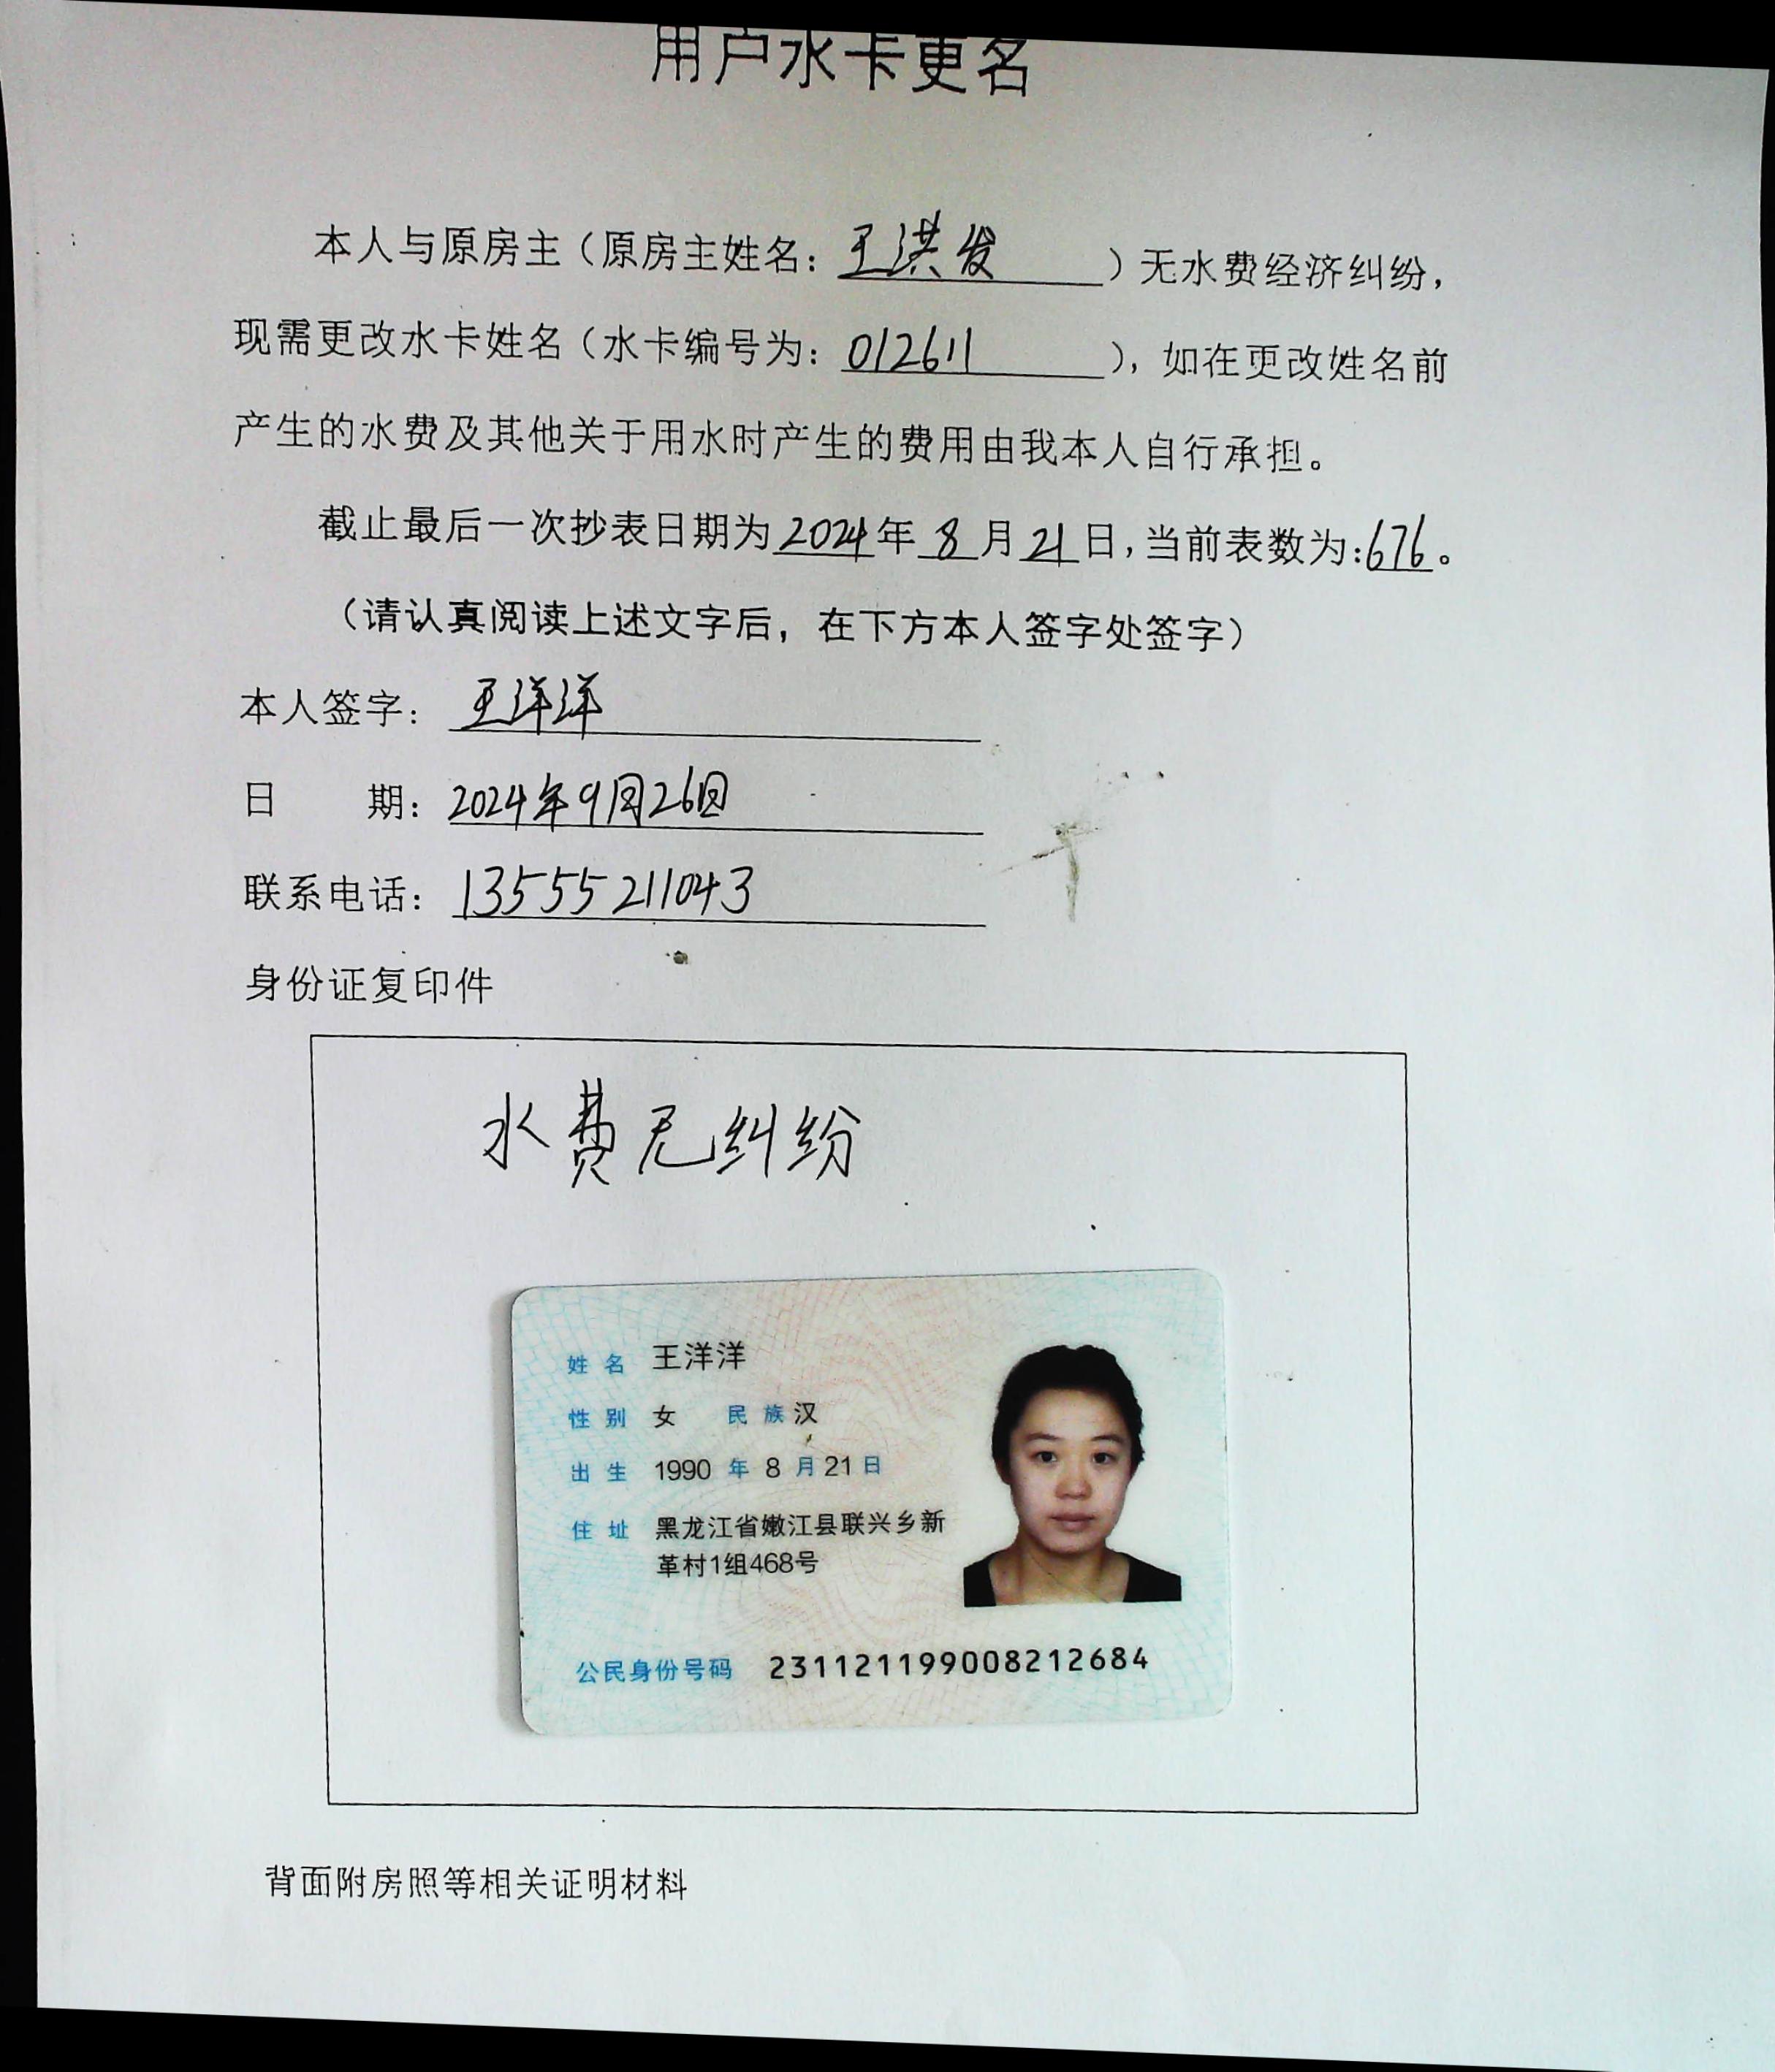 用户水卡更名
本人与原房主（原房主姓名：王洪发）无水费经济纠纷，
现需更改水卡姓名（水卡编号为：012611），如在更改姓名前
产生的水费及其他关于用水时产生的费用由我本人自行承担。
截止最后一次抄表日期为2024年8月21日，当前表数为：676。
（请认真阅读上述文字后，在下方本人签字处签字）
本人签字：王洋洋
日 期：2024年9月26日
联系电话：13555211043
身份证复印件
水费无纠纷
姓名 王洋洋
性别 女 民族 汉
出生 1990年8月21日
住址 黑龙江省嫩江县联兴乡新
革村1组468号
公民身份号码 231121199008212684
背面附房照等相关证明材料